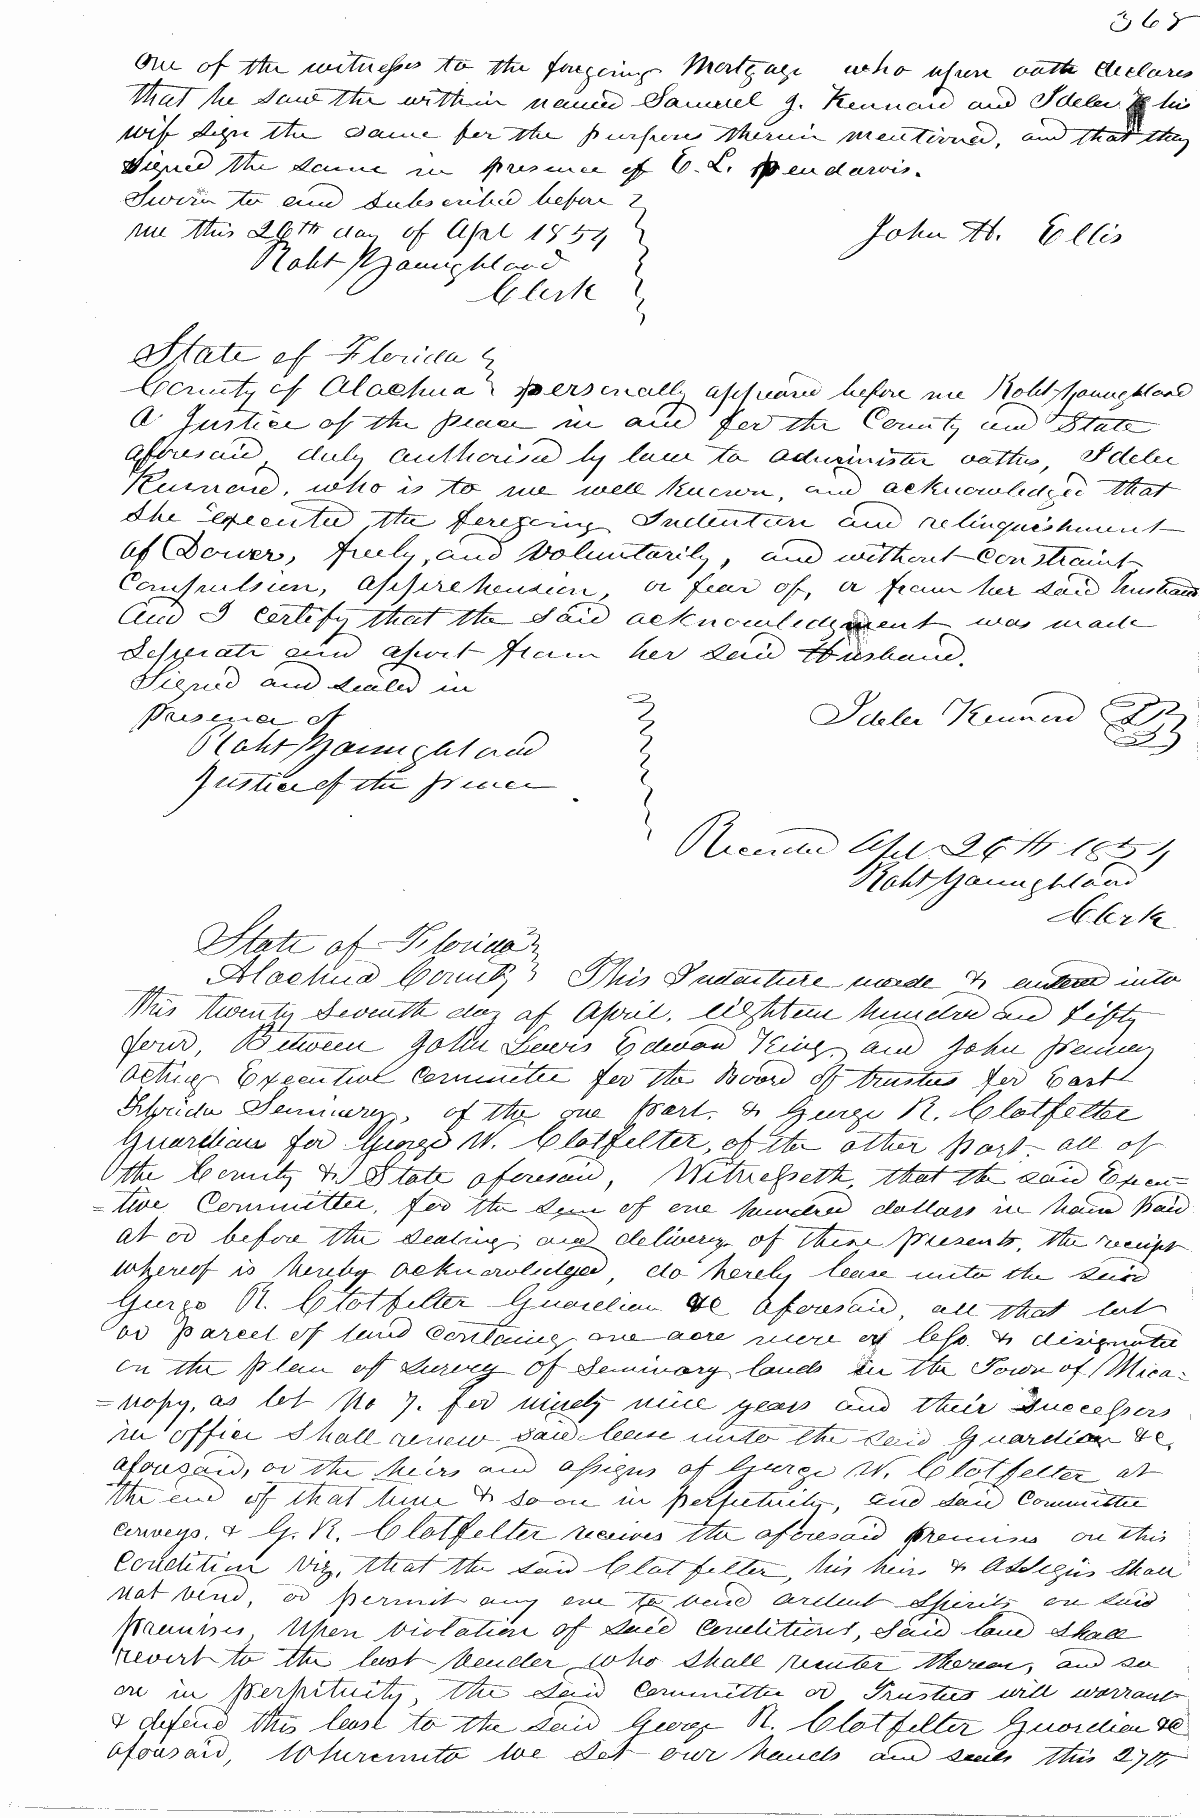 368
One of the witnesses to the foregoing Mortgage who upon oath declares
that he saw the within named Samuel J. Kennard and Ideler his
wife sign the same for the purposes therein mentioned, and that they
signed the same in presence of E. L. Pendarvis.
Sworn to and subscribed before
me this 26th day of Apl 1854
John H. Ellis
Robt Youngblood
Clerk
State of Florida
County of Alachua personally appeared before me Robt Youngblood
A Justice of the peace in and for the County and State
aforesaid, duly authorised by law to administer oaths, Ideler
Kennard, who is to me well known, and acknowledged that
she executed the foregoing Indenture and relinquishment
of Dower, freely, and voluntarily, and without constraint
Compulsion, apprehension, or fear of, or from her said husband
And I certify that the said acknowledgment was made
Seperate and apart from her said Husband.
Signed and sealed in
presence of
Ideler Kennard
Robt Youngblood
Justice of the peace
Recorded Apl 26th 1854
Robt Youngblood
Clerk
State of Florida
Alachua County This Indenture made & entered into
this twenty seventh day of April, eighteen hundred and fifty
four, Between John Lewis Edward King, and John Penney
acting Executive committee for the Board of trustees for East
Florida Seminery, of the one part, & George R. Clotfelter
Guardian for George W. Clotfelter, of the other part, all of
the County & State aforesaid, Witnesseth, that the said Execu=
=tive Committee, for the sum of one hundred dollars in hand paid
at or before the sealing and delivery of these presents, the receipt
whereof is hereby acknowledged, do hereby lease unto the said
George R. Clotfelter Guardian &c aforesaid, all that lot
or parcel of land containg one acre more or less & designated
on the plan of survey of Seminary lands in the Town of Mica=
=nopy, as lot No 7. for ninety nine years and their successors
in office shall renew said lease unto the said Guardian &c,
aforesaid, or the heirs and assigns of George W. Clotfelter at
the end of that time & so on in perpetuity, and said Committee
conveys, & G. R. Clotfelter receives the aforesaid premises on this
Condition viz, that the said Clotfelter, his heirs & Assigns shall
not vend, or permit any one to vend ardent spirits on said
premises, Upon violation of said conditions, said land shall
revert to the last vender who shall reenter thereon, and so
on in perpituity, the said committee or Trustees will warrant
& defend this lease to the said George R. Clotfelter Guardian &c
aforesaid, Whereunto we set our hands and seals this 27th